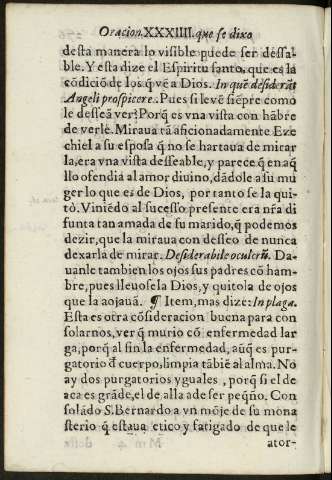 Oracion.XXXIIII.que se dixo
desta manera lo visible puede ser dessea-
ble. Y esta dize el Espiritu santo, que es la
cõdiciõ de los q̃ vẽ a Dios. In quẽ desiderãt
Angeli prospicere. Pues si le vẽ siẽpre como
le dessea ver? Porq̃ es vna vista con hãbre
de verle. Miraua tã aficionadamente Eze
chiel a su esposa q̃ no se hartaua de mirar
la, era vna vista desseable, y parece q̃ en aq̃
llo ofendia al amor diuino, dãdole a su mu
ger lo que es de Dios, por tanto se la qui-
tò. Viniẽdo al sucesso presente era nr̃a di
funta tan amada de su marido, q̃ podemos
dezir, que la miraua con desseo de nunca
dexarla de mirar. Desiderabile oculorũ. Da-
uanle tambien los ojos sus padres cõ ham-
bre, pues lleuosela Dios, y quitola de ojos
que la aojauã. ¶ Item, mas dize: In plaga.
Esta es otra cõsideracion buena para con
solarnos, ver q̃ murio cõ enfermedad lar
ga, porq̃ al fin la enfermedad, aũq̃ es pur-
gatorio đ cuerpo, limpia tãbiẽ al alma. No
ay dos purgatorios yguales, porq̃ si el de
aca es grãde, el de alla ade ser peq̃ño. Con
solãdo S. Bernardo a vn mõje de su mona
sterio q̃ estaua etico y fatigado de que le
ator-